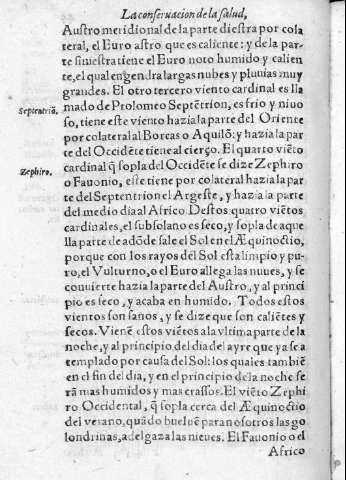 La conseruacion de la salud,
Austro meridional de la parte diestra por cola
teral, el Euro astro que es caliente: y de la par-
te siniestra tiene el Euro noto humido y calien
te, el qual engendra largas nubes y pluuias muy
grandes. El otro tercero viento cardinal es lla
Septentriõ.
mado de Ptolomeo Septẽtrion, es frio y niuo
so, tiene este viento hazia la parte del Oriente
por colateral al Borcas o Aquilõ: y hazia la par
te del Occidẽte tiene al cierço. El quarto viẽto
Zephiro.
cardinal q̃ sopla del Occidẽte se dize Zephiro
o Fauonio, este tiene por colateral hazia la par
te del Septentrion el Argeste, y hazia la parte
del medio dia al Africo. Destos quatro viẽtos
cardinales, el subsolano es seco, y sopla de aque
lla parte de adõde sale el Sol en el Æquinoctio,
porque con los rayos del Sol esta limpio y pu-
ro, el Vulturno, o el Euro allega las nuues, y se
conuierte hazia la parte del Austro, y al princi
pio es seco, y acaba en humido. Todos estos
vientos son sanos, y se dize que son caliẽtes y
secos. Vienẽ estos viẽtos a la vltima parte de la
noche, y al principio del dia del ayre que ya se a
templado por causa del Sol: los quales tambiẽ
en el fin del dia, y en el principio de la noche se
rã mas humidos y mas crassos. El viẽto Zephi
ro Occidental, q̃ sopla cerca del Æquinoctio
del verano, quãdo bueluẽ para nosotros las go
londrinas, adelgaza las nieues. El Fauonio o el
Africo